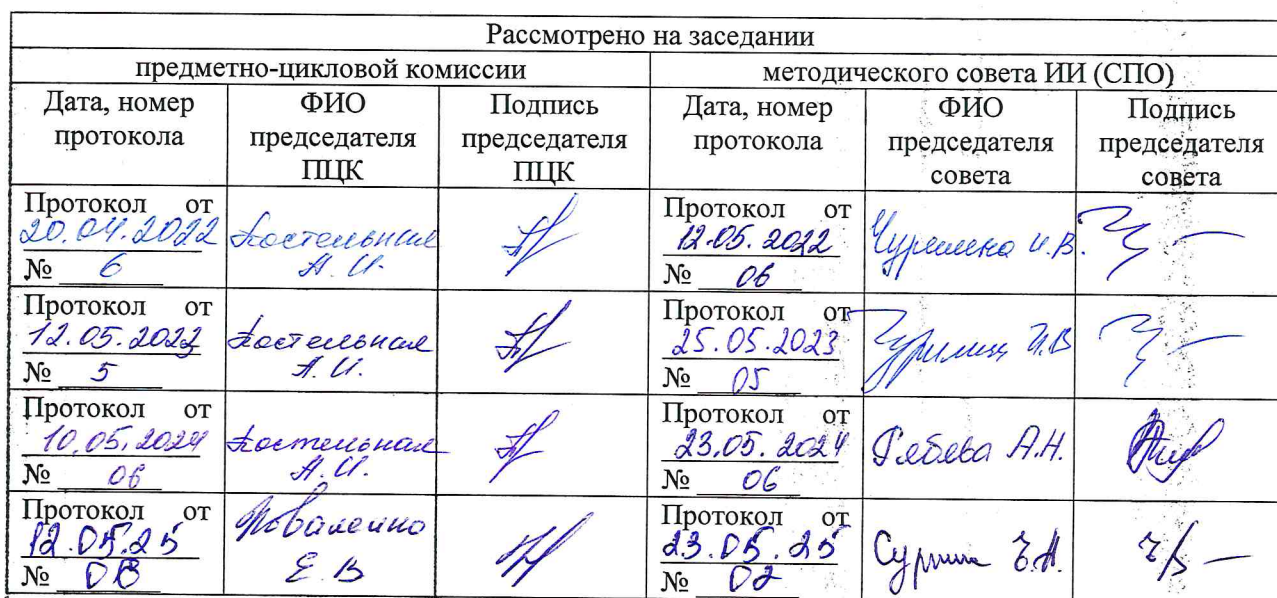 Рассмотрено на заседании
предметно-цикловой комиссии
методического совета ИИ (СПО)
Дата, номер протокола
ФИО председателя ПЦК
Подпись председателя ПЦК
Дата, номер протокола
ФИО председателя совета
Подпись председателя совета
Протокол от
20.04.2022
№ 6
Костельная
А. И.
Протокол от
12.05.2022
№ 06
И.В.
Протокол от
12.05.2023
№ 5
Костельная
А. И.
Протокол от
25.05.2023
№ 05
И.В.
Протокол от
10.05.2024
№ 06
Костельная
А. И.
Протокол от
23.05.2024
№ 06
А.Н.
Протокол от
12.05.25
№
Коваленко
Е. В
Протокол от
23.05.25
№